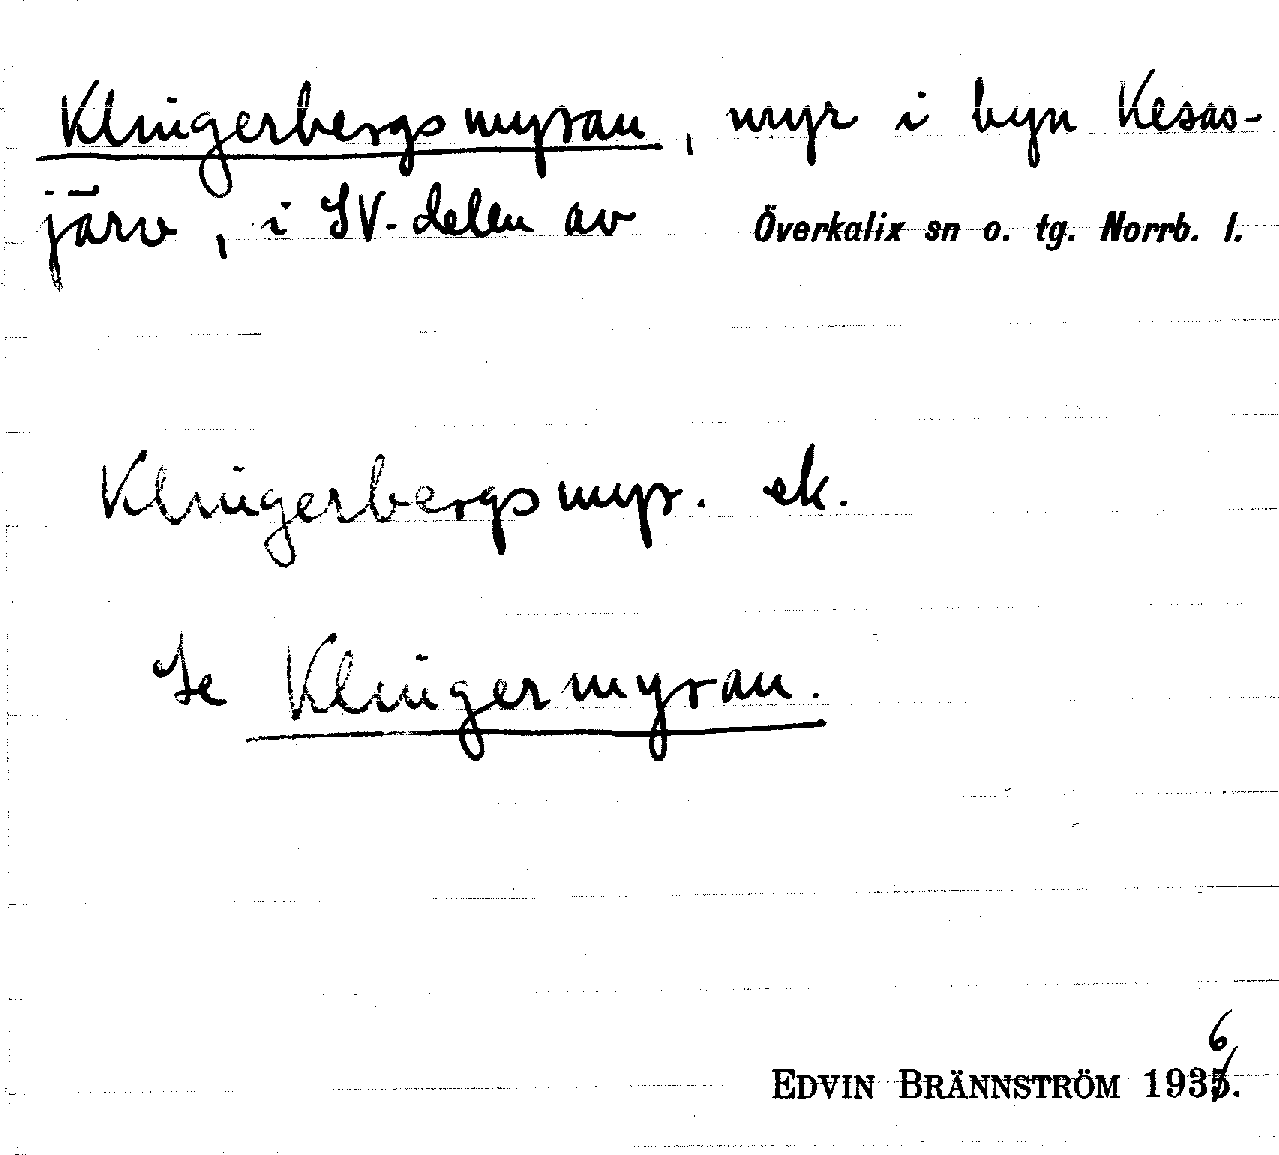 Klingerbergsmyran, myr i byn Kesas-
järv, i SV-delen av Överkalix sn o. tg. Norrb. l.
Klingerbergsmyr. ek.
Se Klingermyran.
6
EDVIN BRÄNNSTRÖM 1935.